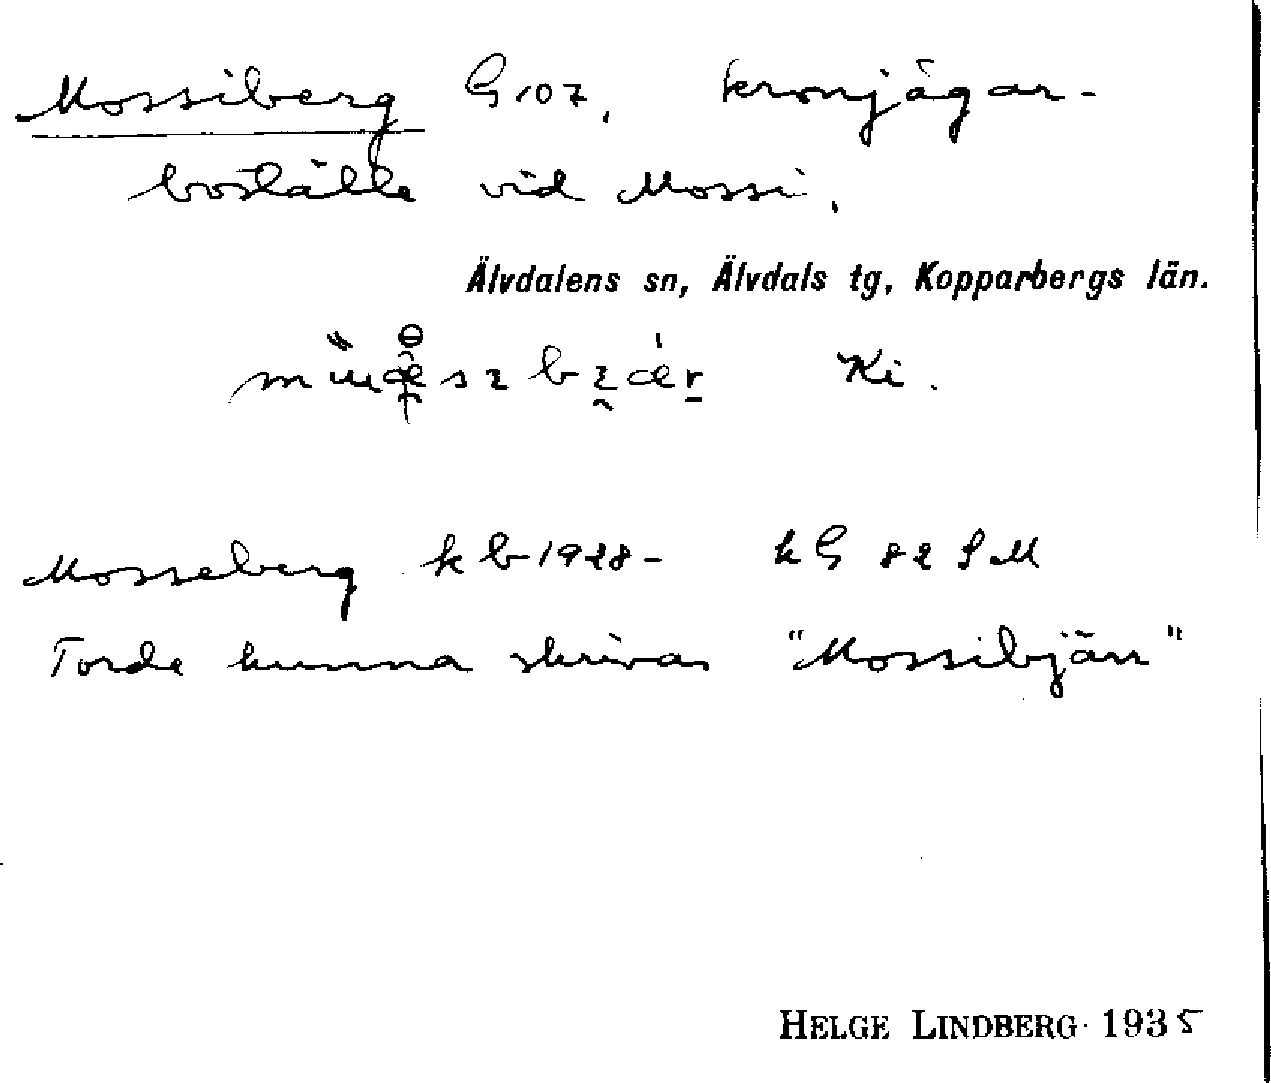 Mossiberg G 107, kronjägar-
boställe vid Mossi.
Älvdalens sn, Älvdals tg, Kopparbergs län.
Ki.
Mosseberg kb 1928- k G 82 S M
Torde kunna skrivas "Mossibjärr"
HELGE LINDBERG 1935